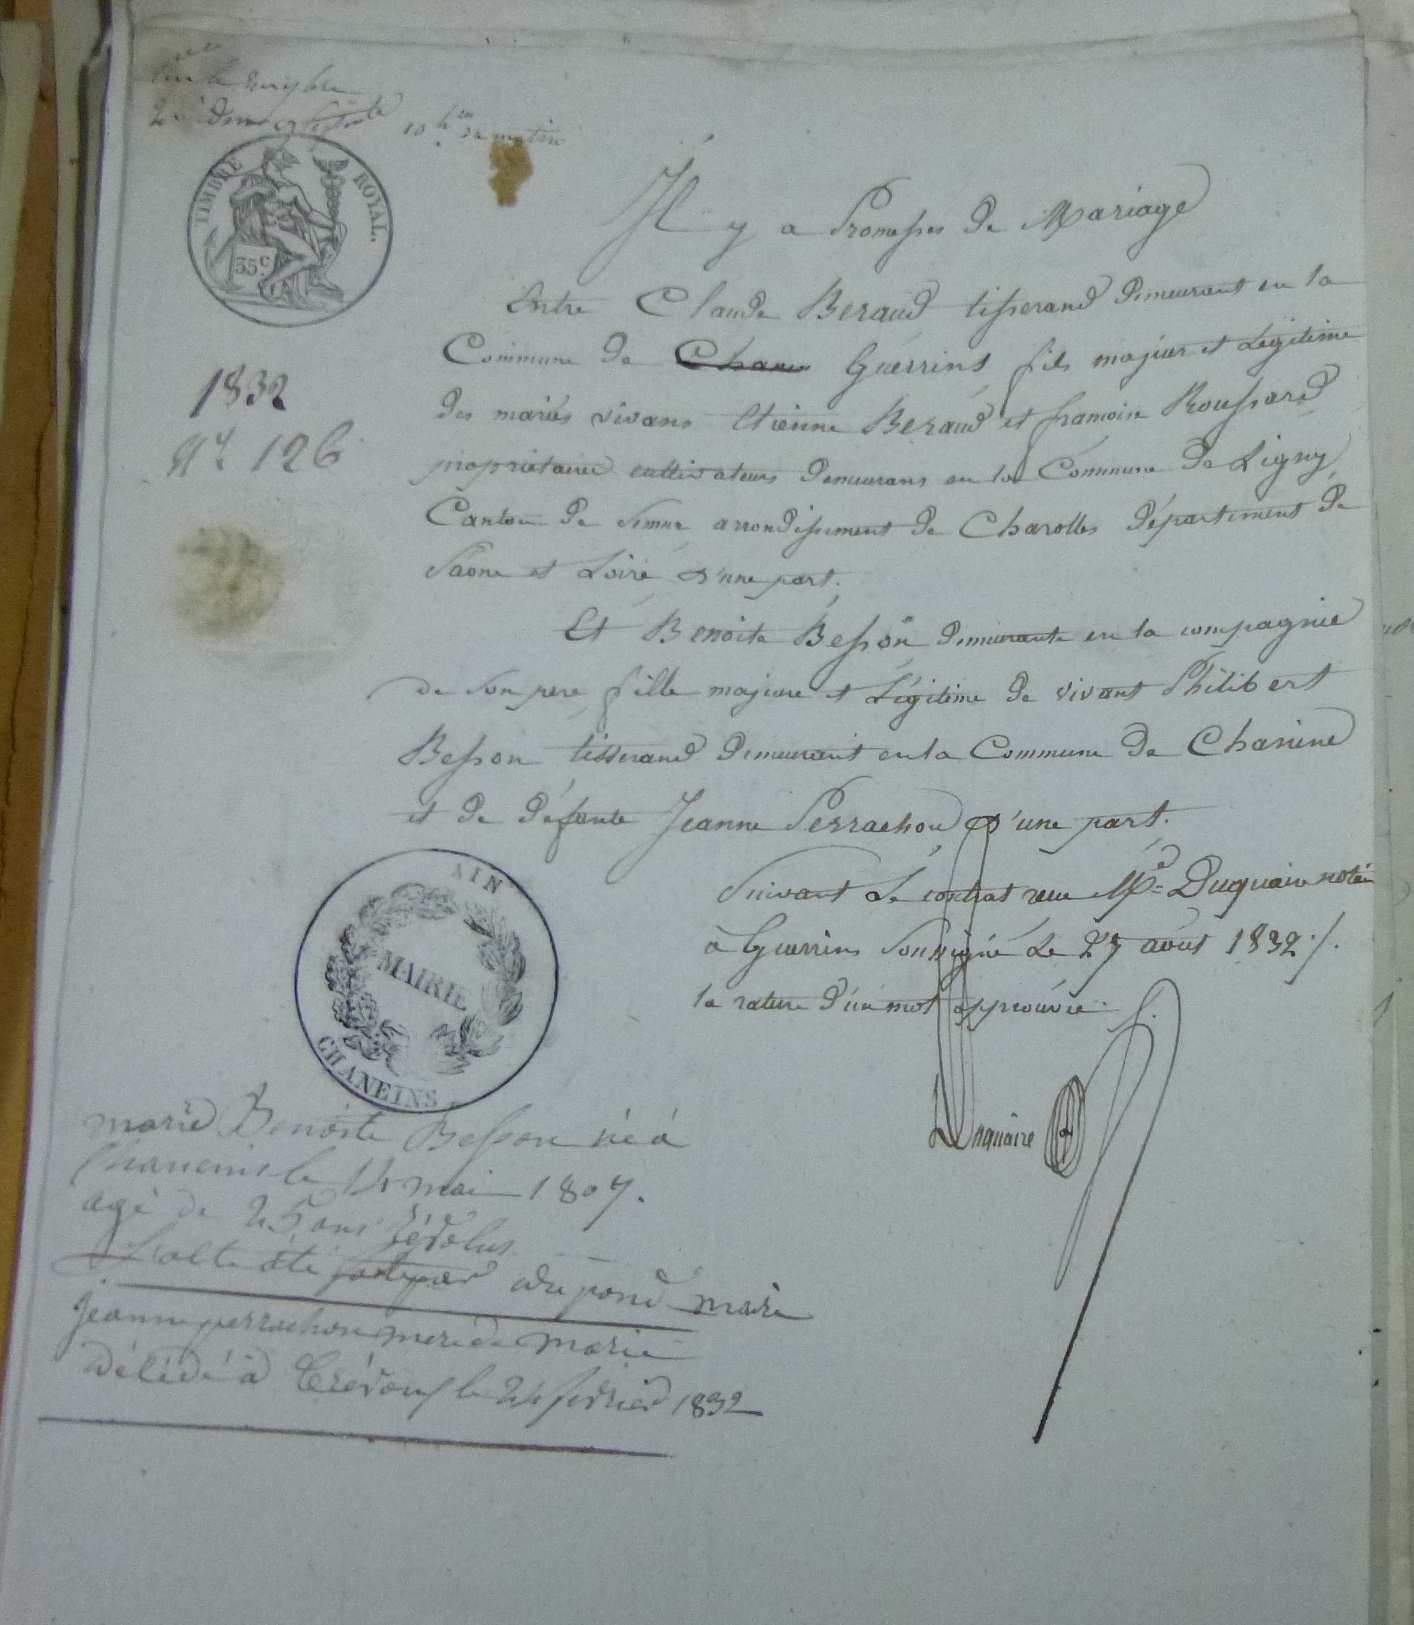 10 h du matin
TIMBRE ROYAL.
35 c
1832
n° 126
Il y a Promesses de Mariage
Entre Claude Beraud tisserand demeurant en la
Commune de Chanin Guerrins fils majeur et Légitime
des mariés vivans Etienne Beraud et francoise Roussard
proprietaires cultivateurs demeurans en la Commune de Ligny
Canton de Semur arrondissement de Charolles département de
Saone et Loire d'une part.
Et Benoite Besson demeurante en la compagnie
de son pere fille majeure et Légitime de vivant Philibert
Besson tisserand demeurant en la Commune de Chanine
et de défunte Jeanne Perrachon d'une part.
Suivant Le contrat reçu Me Duquaire notaire
à Guerrins Soussigné Le 27 août 1832 ./.
la rature d'un mot approuvée
Duquaire
AIN
MAIRIE
CHANEINS
marie Benoite Besson né à
Chaneins le 14 mai 1807.
agé de 25 ans révolus
maire
jeanne perrachon mere de marie
décédé à Trévoux le 24 fevrier 1832